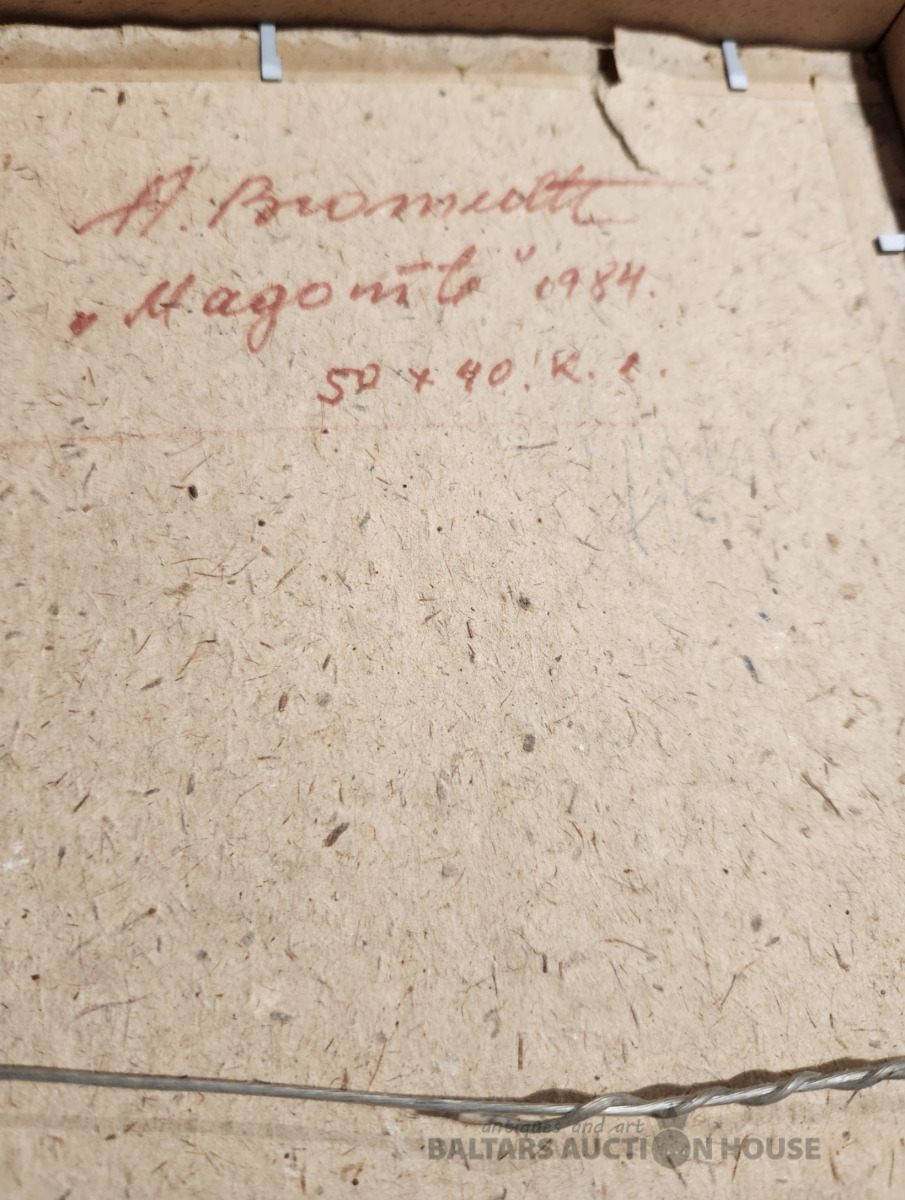 A. Bromultt
„Magonīte" 1984.
50 x 40. K. e.
antiques and art
BALTARS AUCTION HOUSE